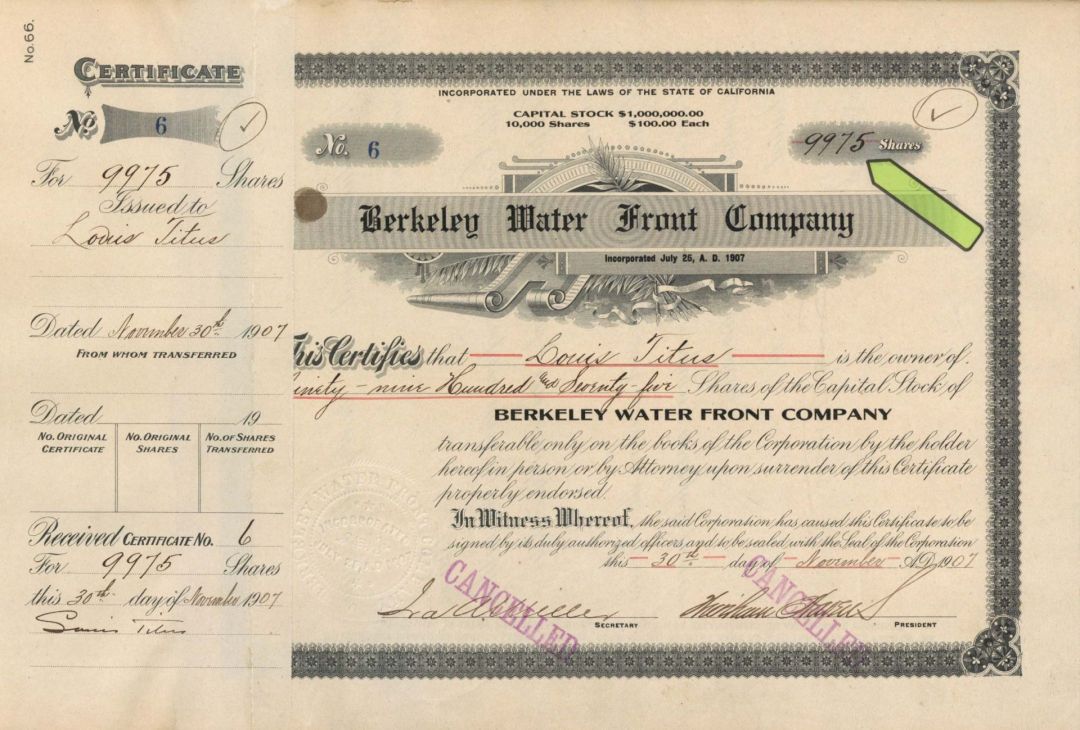 No. 66.
CERTIFICATE
No 6
For 9975 Shares
Issued to
Louis Titus
Dated November 30th 1907
FROM WHOM TRANSFERRED
Dated 19
NO. ORIGINAL CERTIFICATE
NO. ORIGINAL SHARES
NO. OF SHARES TRANSFERRED
Received CERTIFICATE NO. 6
For 9975 Shares
this 30th day of November 1907
Louis Titus
INCORPORATED UNDER THE LAWS OF THE STATE OF CALIFORNIA
CAPITAL STOCK $1,000,000.00
10,000 Shares $100.00 Each
No. 6
9975 Shares
Berkeley Water Front Company
Incorporated July 25, A. D. 1907
This Certifies that Louis Titus is the owner of
Ninety-nine Hundred and Seventy-five Shares of the Capital Stock of
BERKELEY WATER FRONT COMPANY
transferable only on the books of the Corporation by the holder
hereof in person or by Attorney upon surrender of this Certificate
properly endorsed.
In Witness Whereof, the said Corporation has caused this Certificate to be
signed by its duly authorized officers and to be sealed with the Seal of the Corporation
this 30th day of November A.D. 1907
CANCELLED
CANCELLED
SECRETARY
PRESIDENT